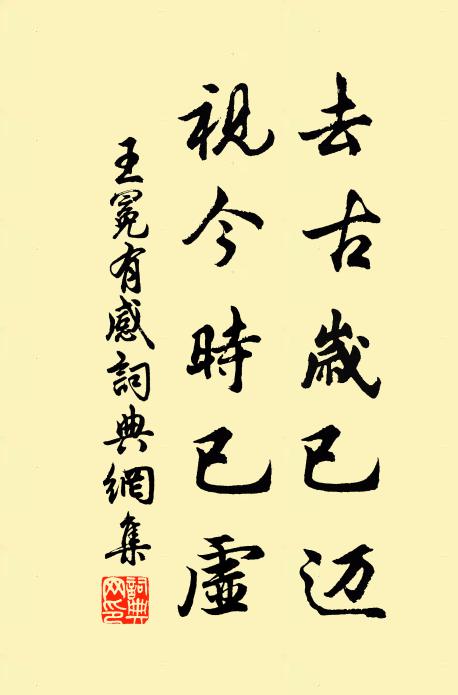 去古歲已迈
視今時已虛
王冕有感詞典網集
詞典网印